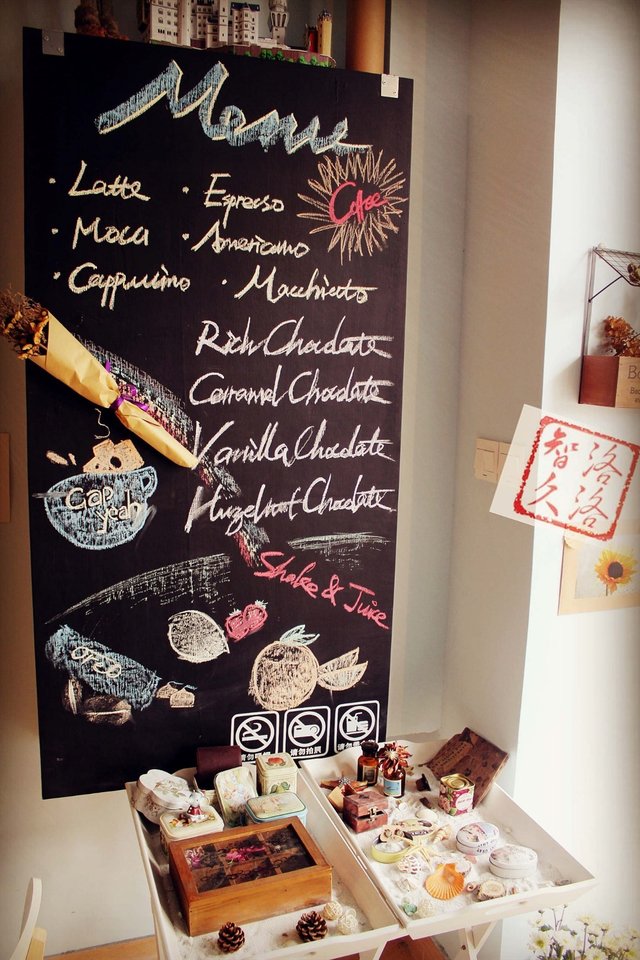 Menue
· Latte
· Espresso
Coffee
· Moca
· Americano
· Cappuccino
· Macchiato
Rich Chocolate
Carramel Chocolate
Vanilla Chocolate
Huzelnut Chocolate
Cap
yeah
Shake & Juice
OREO
请勿吸烟
请勿拍照
洛洛
智久